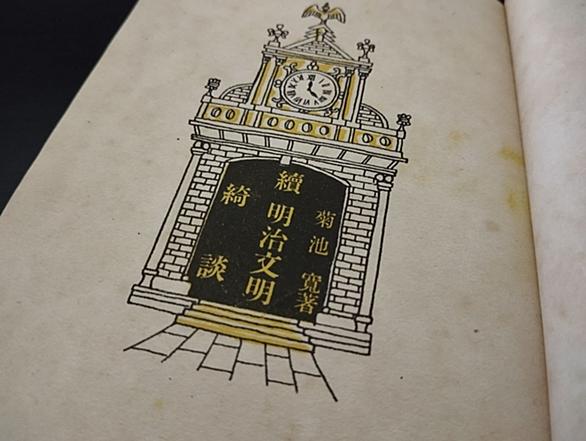 菊池寛著
續明治文明
綺談